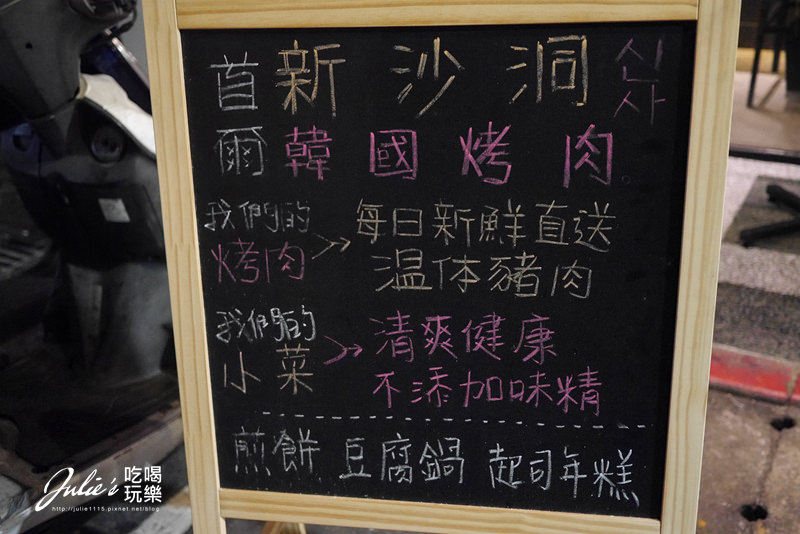 首爾 新沙洞 신사
韓國烤肉
我們的烤肉 > 每日新鮮直送
温体豬肉
我們的小菜 > 清爽健康
不添加味精
煎餅 豆腐鍋 起司年糕
Julie's 吃喝玩樂
http://julie1115.pixnet.net/blog